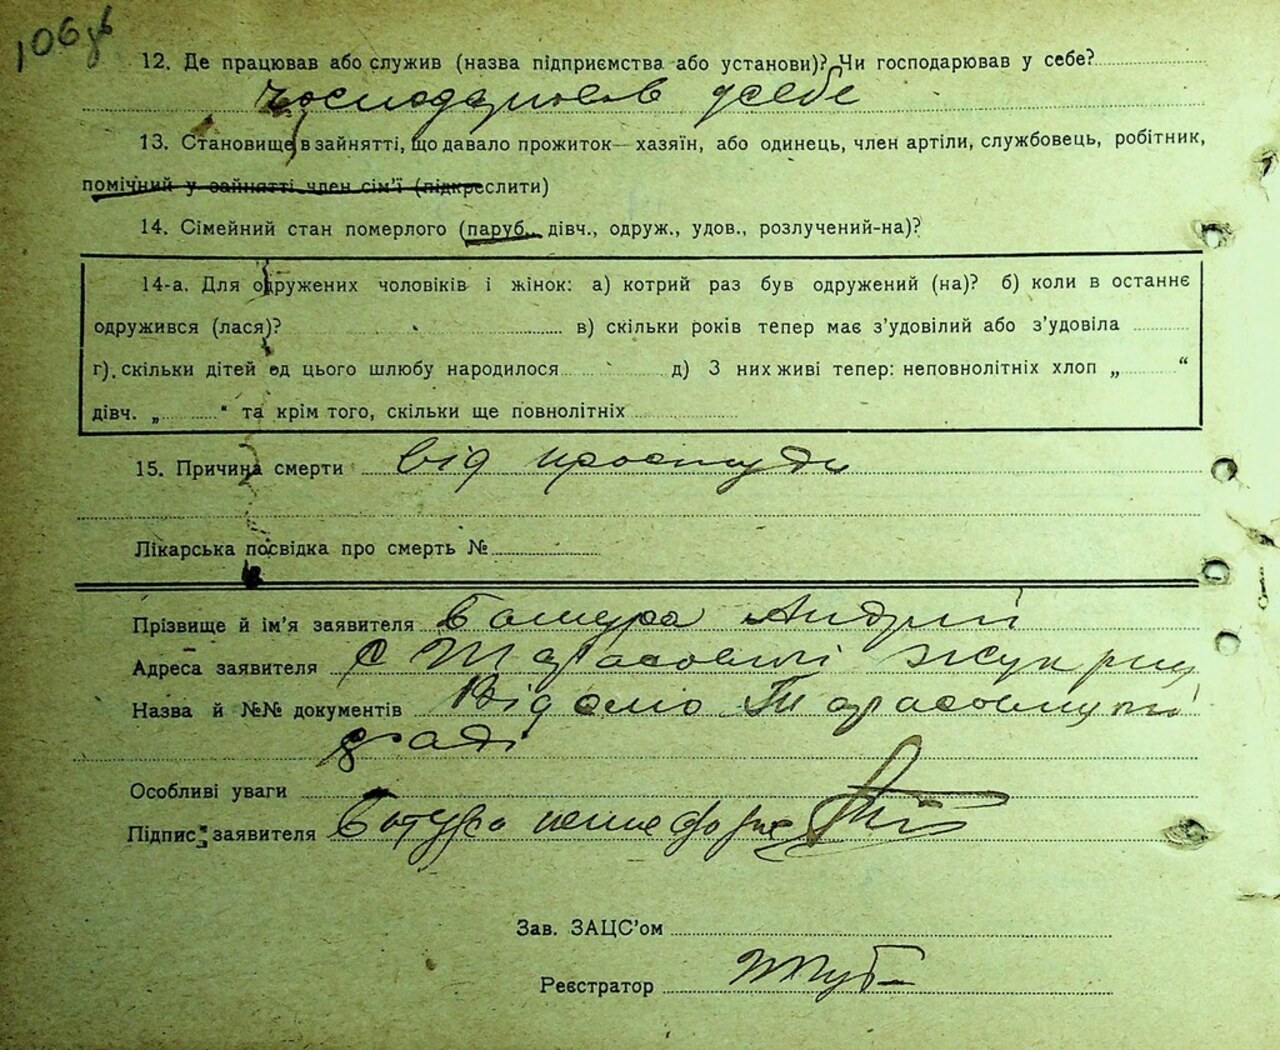 106зв
12. Де працював або служив (назва підприємства або установи)? Чи господарював у себе?
господарював усебе
13. Становище в зайнятті, що давало прожиток— хазяїн, або одинець, член артіли, службовець, робітник,
помічний у зайнятті член сім'ї (підкреслити)
14. Сімейний стан померлого (паруб., дівч., одруж., удов., розлучений-на)?
14-а. Для одружених чоловіків і жінок: а) котрий раз був одружений (на)? б) коли в останнє
одружився (лася)? в) скільки років тепер має з'удовілий або з'удовіла
г). скільки дітей од цього шлюбу народилося д) З них живі тепер: неповнолітніх хлоп „ “
дівч. „ “ та крім того, скільки ще повнолітніх
15. Причина смерти від простуди
Лікарська посвідка про смерть №
Прізвище й ім'я заявителя Батура Андрій
Адреса заявителя с Тарасовці
Назва й №№ документів Відомо Тарасовецькій
раді
Особливі уваги
Підпис заявителя Батура
Зав. ЗАЦС'ом
Реєстратор